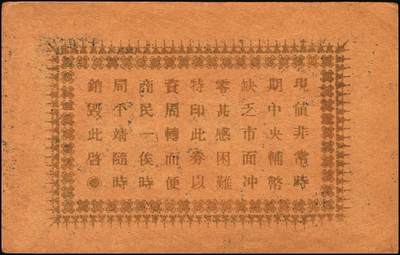 現值非常時
期中央輔幣
缺乏市面冲
零甚感困難
特印此券以
資周轉而便
商民一俟時
局平靖隨時
銷毀此啓